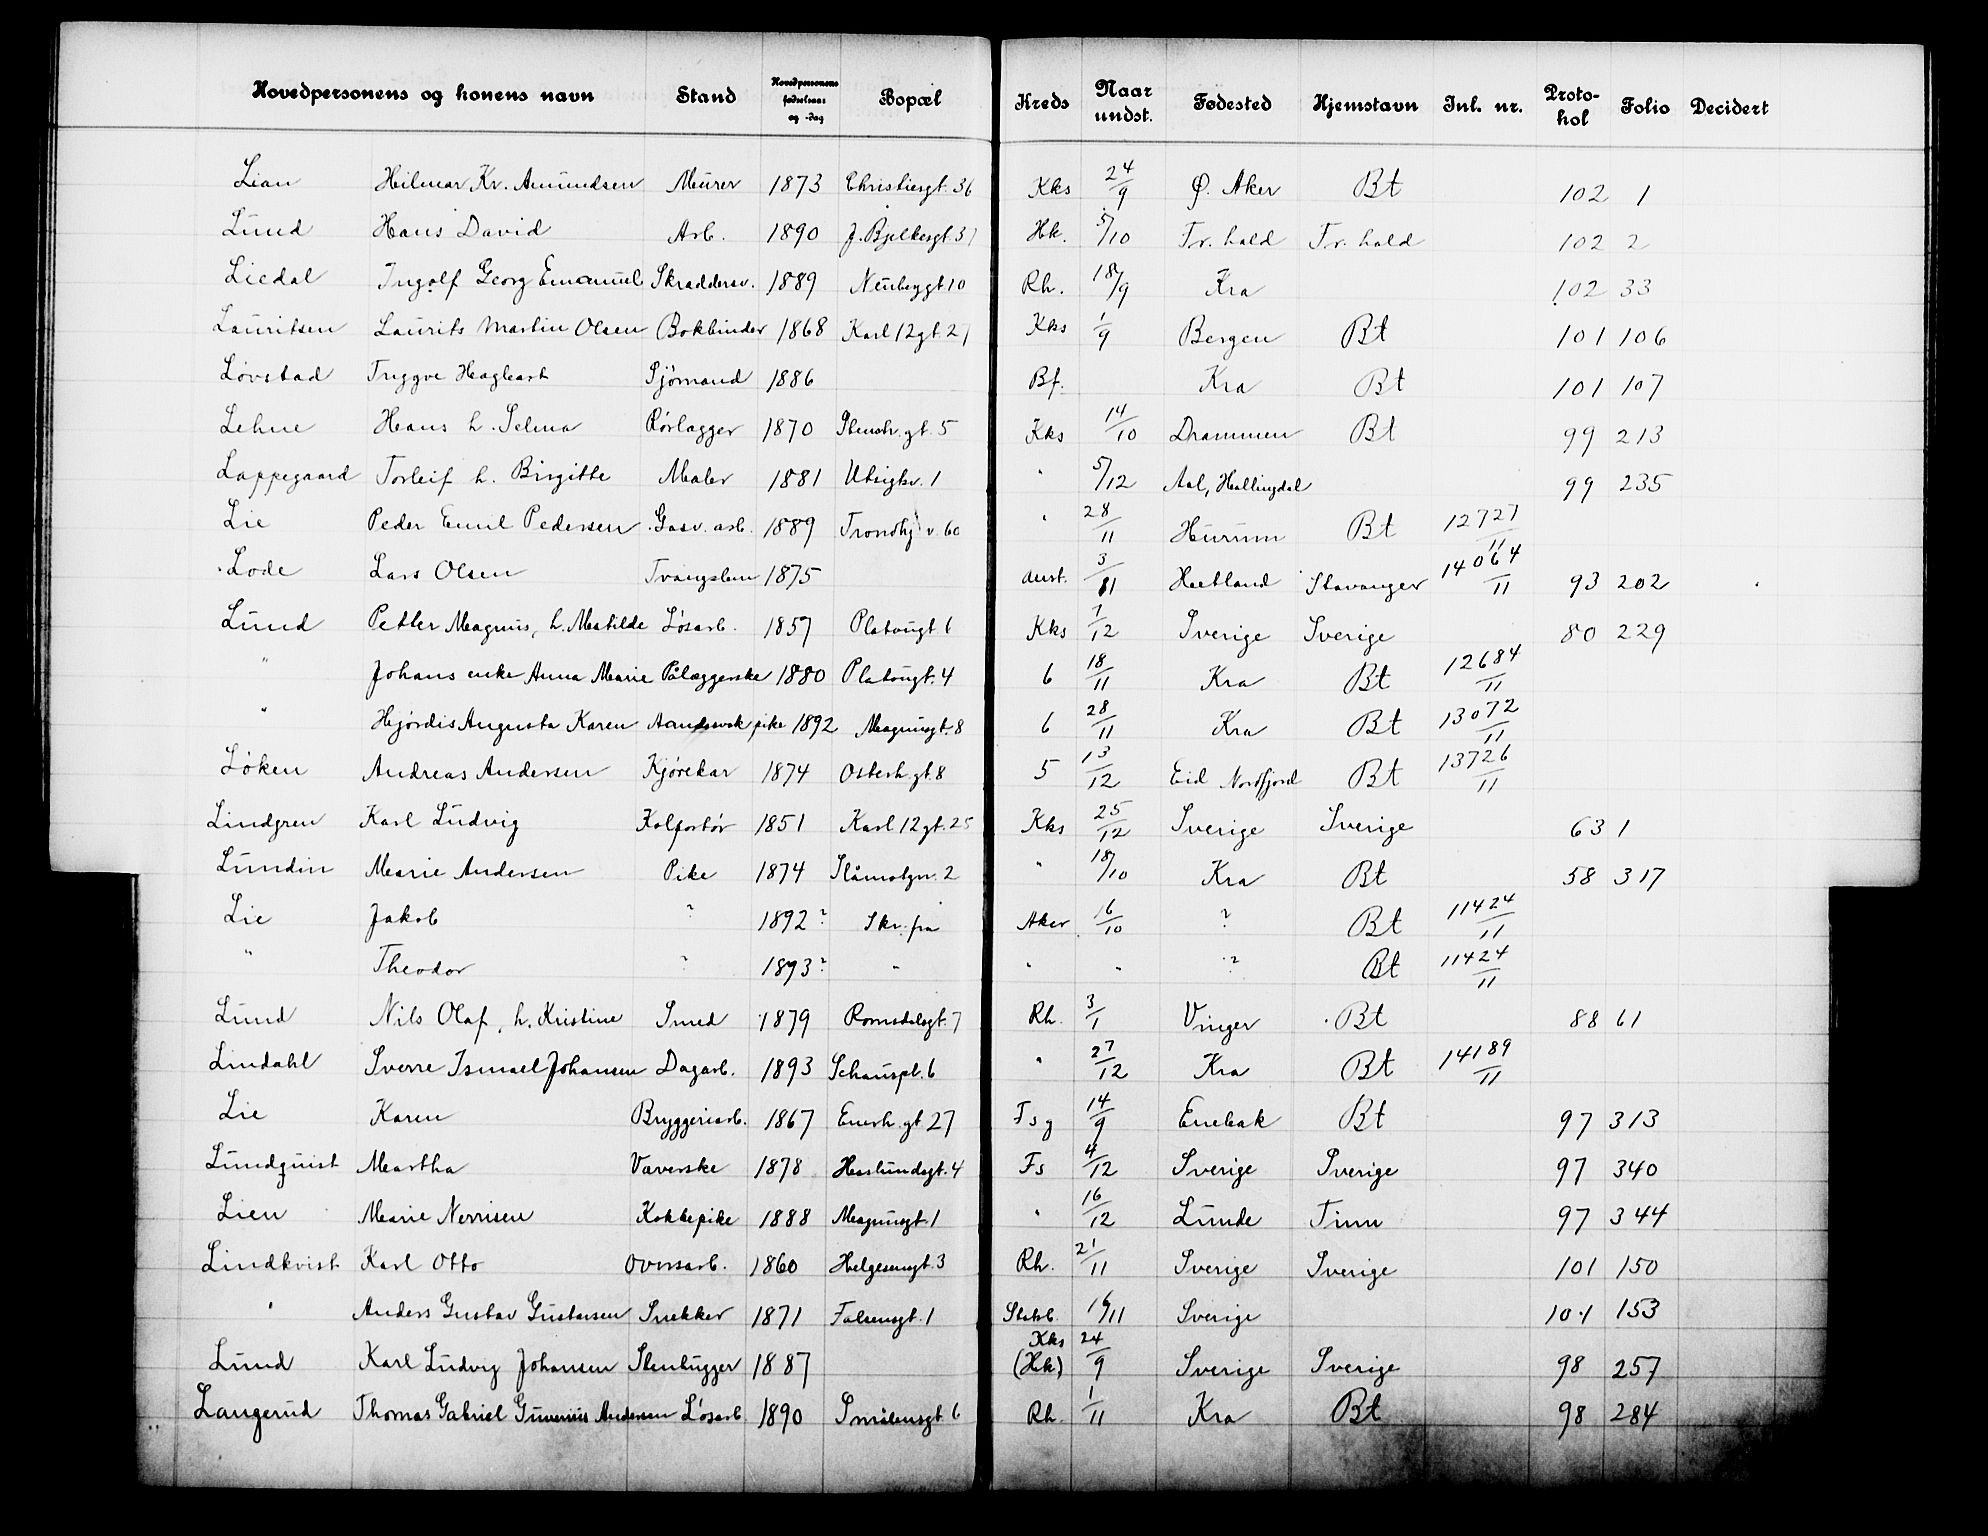 Hovedpersonens og konens navn Stand Hovedpersonens fødselsaar og -dag Bopæl Kreds Naar undst. Fødested Hjemstavn Inl. nr. Proto-kol Folio Decidert
Lian Hilmar Kr. Amundsen Murer 1873 Christiesgt. 36 Kks 24/9 Ø. Aker Bt 102 1
Lund Hans David Arb. 1890 J. Bjelkesgt. 31 Hk. 5/10 Fr. hald Fr. hald 102 2
Liedal Ingolf Georg Emanuel Skraddersv. 1889 Neubeggt 10 Rh. 18/9 Kra 102 33
Lauritsen Laurits Martin Olsen Bokbinder 1868 Karl 12gt. 21 Kks 1/9 Bergen Bt 101 106
Løvstad Tryggve Hagbart Sjømand 1886 Bf. Kra Bt 101 107
Lehne Hans h. Selma Rørlægger 1870 Stenstr. gt. 5 Kks 14/10 Drammen Bt 99 213
Lappegaard Torleif h. Birgitte Maler 1881 Utsigtsv. 1 " 5/12 Aal, Hallingdal 99 235
Lie Peder Emil Pedersen Gasv. arb. 1889 Trondhj v. 60 " 28/11 Hurum Bt 12727/11
Lode Lars Olsen Tvangslem 1875 anst. 3/11 Hetland Stavanger 14064/11 93 202
Lund Petter Magnus, h. Matilde Løsarb. 1857 Platougt 6 Kks 7/12 Sverige Sverige 80 229
" Johans enke Anna Marie Pålæggerske 1880 Platougt. 4 6 18/11 Kra Bt 12684/11
" Hjørdis Augusta Karen Aandssvak pike 1892 Magnusgt. 8 6 28/11 Kra Bt 13072/11
Løken Andreas Andersen Kjørekar 1874 Osterh. gt. 8 5 13/12 Eid Nordfjord Bt 13726/11
Lindgren Karl Ludvig Kolportør 1851 Karl 12gt. 25 Kks 25/12 Sverige Sverige 63 1
Lundin Marie Andersen Pike 1874 Slåmotgn. 2 " 18/10 Kra Bt 58 317
Lie Jakob ? 1892? Skr. fra Aker 16/10 ? Bt 11424/11
" Theodor ? 1893? " " " ? Bt 11424/11
Lund Nils Olaf, h. Kristine Smed 1879 Romsdalsgt. 7 Rh. 3/1 Vinger Bt 88 61
Lindahl Sverre Ismael Johansen Dagarb. 1893 Schauspl. 6 " 27/12 Kra Bt 14189/11
Lie Karen Bryggeriarb. 1867 Enerh. gt 27 Fsg 14/9 Enebak Bt 97 313
Lundquist Martha Væverske 1878 Haslundsgt. 4 Fs 4/12 Sverige Sverige 97 340
Lien Marie Nerrisen Kokkepike 1888 Magnusgt. 1 " 16/12 Lunde Tinn 97 344
Lindkvist Karl Otto Ovnsarb. 1860 Helgesensgt. 3 Rh. 21/11 Sverige Sverige 101 150
" Anders Gustav Gustavsen Snekker 1871 Falsensgt. 1 Statsb. 16/11 Sverige 101 153
Lund Karl Ludvig Johansen Stenhugger 1887 Kks (Hk) 24/9 Sverige Sverige 98 257
Langerud Thomas Gabriel Gunerius Andersen Løsarb. 1890 Smålensgt 6 Rh. 1/11 Kra Bt 98 284